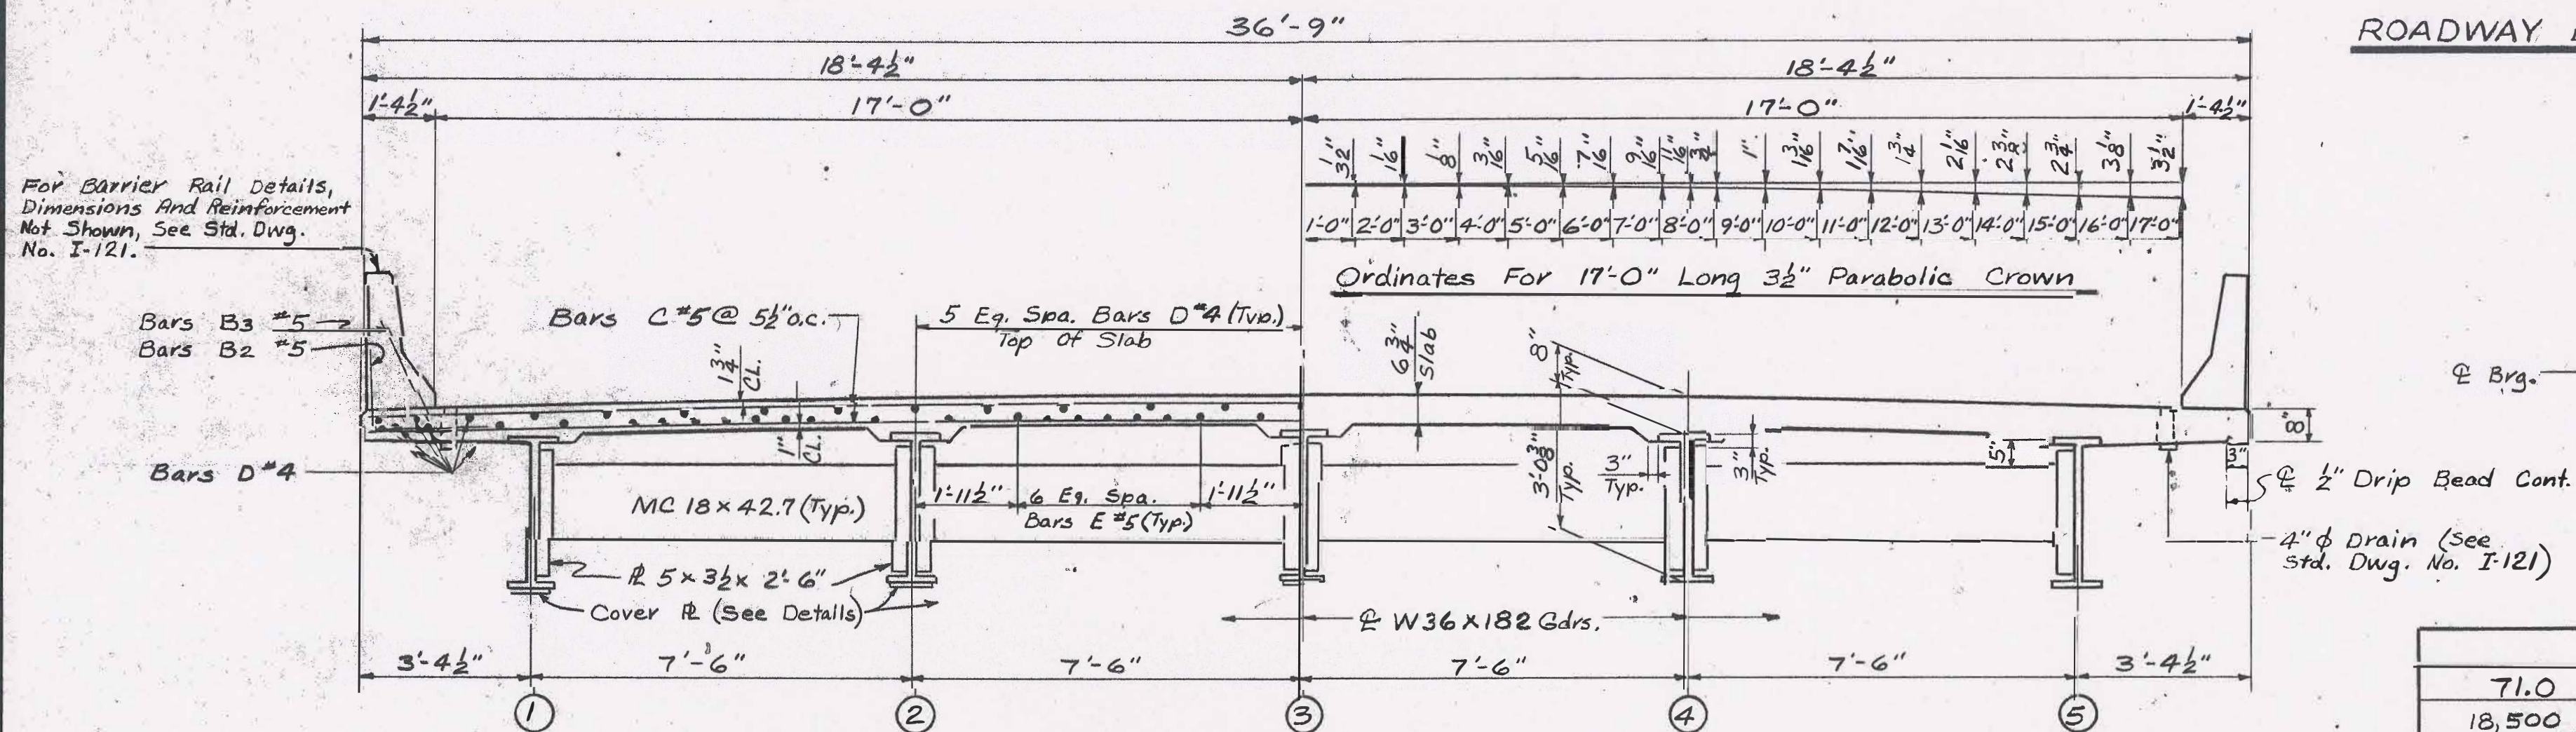 36'-9"
ROADWAY
18'-4½"
18'-4½"
1'-4½"
17'-0"
17'-0"
1'-4½"
1/32"
1/16"
1/8"
3/16"
5/16"
7/16"
9/16"
11/16"
3/4"
1"
1 3/16"
1 7/16"
1 3/4"
2 1/16"
2 3/8"
2 3/4"
3 1/8"
3 1/2"
1'-0" 2'-0" 3'-0" 4'-0" 5'-0" 6'-0" 7'-0" 8'-0" 9'-0" 10'-0" 11'-0" 12'-0" 13'-0" 14'-0" 15'-0" 16'-0" 17'-0"
Ordinates For 17'-0" Long 3½" Parabolic Crown
For Barrier Rail Details,
Dimensions And Reinforcement
Not Shown, See Std. Dwg.
No. I-121.
Bars B3 #5
Bars B2 #5
Bars C #5 @ 5½" o.c.
5 Eq. Spa. Bars D #4 (Typ.)
Top Of Slab
1 3/4" CL.
6 3/4" Slab
8" Typ.
℄ Brg.
1" CL.
3'-0 3/8" Typ.
3" Typ.
3" Typ.
5"
8"
3"
Bars D #4
MC 18 x 42.7 (Typ.)
1'-11½"
6 Eq. Spa.
Bars E #5 (Typ.)
1'-11½"
℄ ½" Drip Bead Cont.
4" ϕ Drain (See
Std. Dwg. No. I-121)
℄ 5 x 3½ x 2'-6"
Cover ℄ (See Details)
℄ W36 X 182 Gdrs.
3'-4½"
7'-6"
7'-6"
7'-6"
7'-6"
3'-4½"
1
2
3
4
5
71.0
18,500